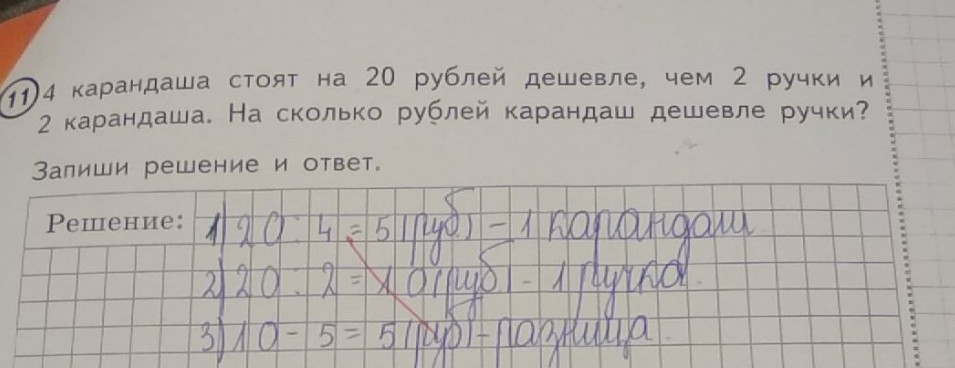 11 4 карандаша стоят на 20 рублей дешевле, чем 2 ручки и
2 карандаша. На сколько рублей карандаш дешевле ручки?
Запиши решение и ответ.
Решение: 1) 20 : 4 = 5 (руб) - 1 карандаш
2) 20 : 2 = 10 (руб) - 1 ручка.
3) 10 - 5 = 5 (руб) - разница.